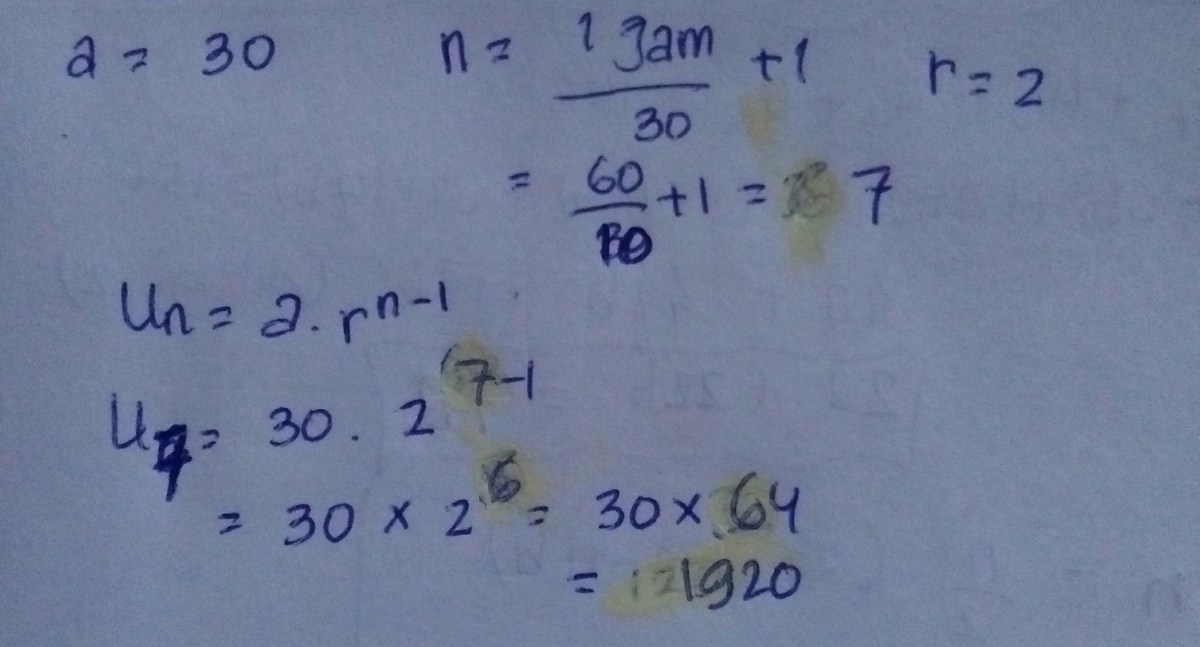 a = 30 n = 1 Jam / 30 + 1 r = 2
= 60 / 10 + 1 = 7
Un = a . r^n-1
U7 = 30 . 2^(7-1
= 30 × 2^6 = 30 × 64
= 1920